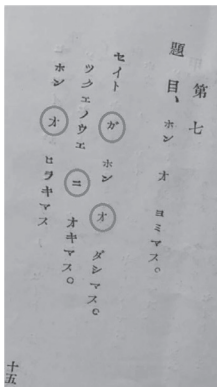 第七
題目、ホン オ ヨミマス。
セイト ガ ホン オ ダシマス。
ツクエノウエ ニ オキマス。
ホン オ ヒラキマス
十五